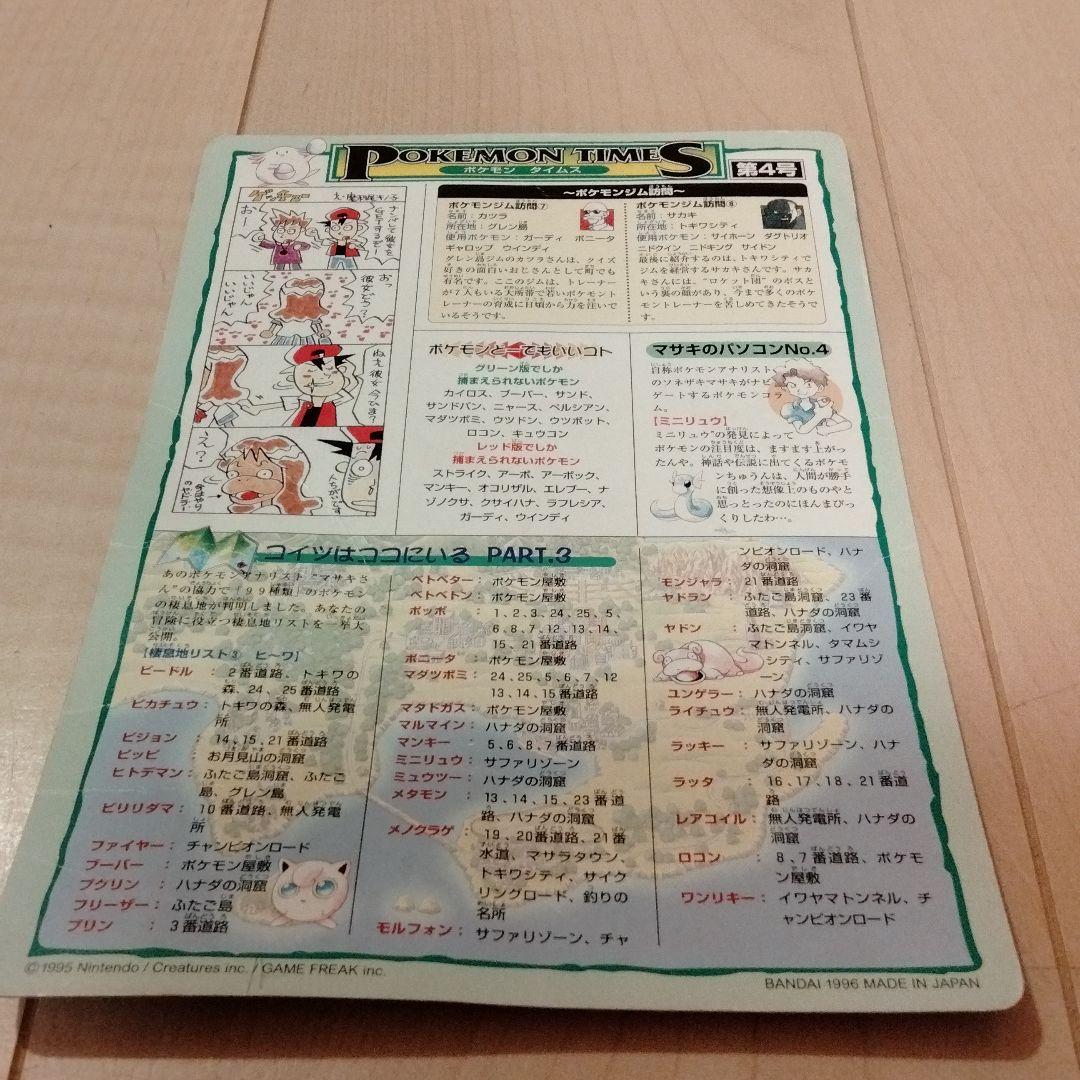 POKEMON TIMES
ポケモン タイムス
第4号
ゲッチュー
ナンパして彼女を
GETするぞー!
おー
おっ
彼女どう?
いいじゃん
いいじゃん
ねえ彼女今ひま?
え?
今はやり
のヤドラン
〜ポケモンジム訪問〜
ポケモンジム訪問⑦
名前:カツラ
所在地:グレン島
使用ポケモン:ガーディ ポニータ
ギャロップ ウインディ
グレン島ジムのカツラさんは、クイズ
好きの面白いおじさんとして町でも
有名です。ここのジムは、トレーナー
が7人もいる大所帯で若いポケモント
レーナーの育成に日頃から力を注いで
いるそうです。
ポケモンジム訪問⑧
名前:サカキ
所在地:トキワシティ
使用ポケモン:サイホーン ダグトリオ
ニドクイン ニドキング サイドン
最後に紹介するのは、トキワシティで
ジムを経営するサカキさんです。サカ
キさんには、"ロケット団"のボスと
いう裏の顔があり、今まで多くのポケ
モントレーナーを苦しめてきたそうで
す。
ポケモンどーでもいいコト
グリーン版でしか
捕まえられないポケモン
カイロス、ブーバー、サンド、
サンドパン、ニャース、ペルシアン、
マダツボミ、ウツドン、ウツボット、
ロコン、キュウコン
レッド版でしか
捕まえられないポケモン
ストライク、アーボ、アーボック、
マンキー、オコリザル、エレブー、ナ
ゾノクサ、クサイハナ、ラフレシア、
ガーディ、ウインディ
マサキのパソコンNo.4
自称ポケモンアナリスト
のソネザキマサキがナビ
ゲートするポケモンコラ
ム。
[ミニリュウ]
ミニリュウ"の発見によって
ポケモンの注目度は、ますます上がっ
たんや。神話や伝説に出てくるポケモ
ンちゅうんは、人間が勝手
に創った想像上のものやと
思っとったのにほんまびっ
くりしたわ…。
コイツはココにいる PART.3
あのポケモンアナリスト"マサキさ
ん"の協力で「99種類」のポケモン
の棲息地が判明しました。あなたの
冒険に役立つ棲息地リストを一挙大
公開。
[棲息地リスト③ ヒ〜ワ]
ビードル : 2番道路、トキワの
森、24、25番道路
ピカチュウ : トキワの森、無人発電
所
ピジョン : 14、15、21番道路
ピッピ お月見山の洞窟
ヒトデマン : ふたご島洞窟、ふたご
島、グレン島
ビリリダマ : 10番道路、無人発電
所
ファイヤー : チャンピオンロード
ブーバー : ポケモン屋敷
プクリン : ハナダの洞窟
フリーザー : ふたご島
プリン : 3番道路
ベトベター : ポケモン屋敷
ベトベトン : ポケモン屋敷
ポッポ : 1、2、3、24、25、5、
6、8、7、12、13、14、
15、21番道路
ポニータ : ポケモン屋敷
マダツボミ : 24、25、5、6、7、12
13、14、15番道路
マタドガス : ポケモン屋敷
マルマイン : ハナダの洞窟
マンキー : 5、6、8、7番道路
ミニリュウ : サファリゾーン
ミュウツー : ハナダの洞窟
メタモン : 13、14、15、23番道
路、ハナダの洞窟
メノクラゲ : 19、20番道路、21番
水道、マサラタウン、
トキワシティ、サイク
リングロード、釣りの
名所
モルフォン : サファリゾーン、チャ
ンピオンロード、ハナ
ダの洞窟
モンジャラ : 21番道路
ヤドラン : ふたご島洞窟、23番
道路、ハナダの洞窟
ヤドン : ふたご島洞窟、イワヤ
マトンネル、タマムシ
シティ、サファリゾ
ーン
ユンゲラー : ハナダの洞窟
ライチュウ : 無人発電所、ハナダの
洞窟
ラッキー : サファリゾーン、ハナ
ダの洞窟
ラッタ : 16、17、18、21番道
路
レアコイル : 無人発電所、ハナダの
洞窟
ロコン : 8、7番道路、ポケモ
ン屋敷
ワンリキー : イワヤマトンネル、チ
ャンピオンロード
©1995 Nintendo / Creatures inc. / GAME FREAK inc.
BANDAI 1996 MADE IN JAPAN